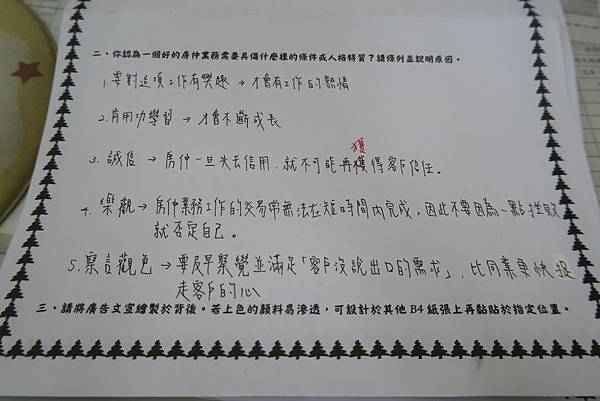 二、你認為一個好的房仲業務需要具備什麼樣的條件或人格特質？請條列並說明原因。
1.要對這項工作有興趣→才會有工作的熱情
2.肯用功學習→才會不斷成長
獲
3.誠信→房仲一旦失去信用，就不可能再獲得客戶信任。
4.樂觀→房仲業務工作的交易常無法在短時間內完成，因此不要因為一點挫敗
就否定自己。
5.察言觀色→要及早察覺並滿足「客戶沒說出口的需求」，比同業更快
走客戶的心
三、請將廣告文宣繪製於背後。若上色的顏料易滲透，可設計於其他B4紙張上再黏貼於指定位置。